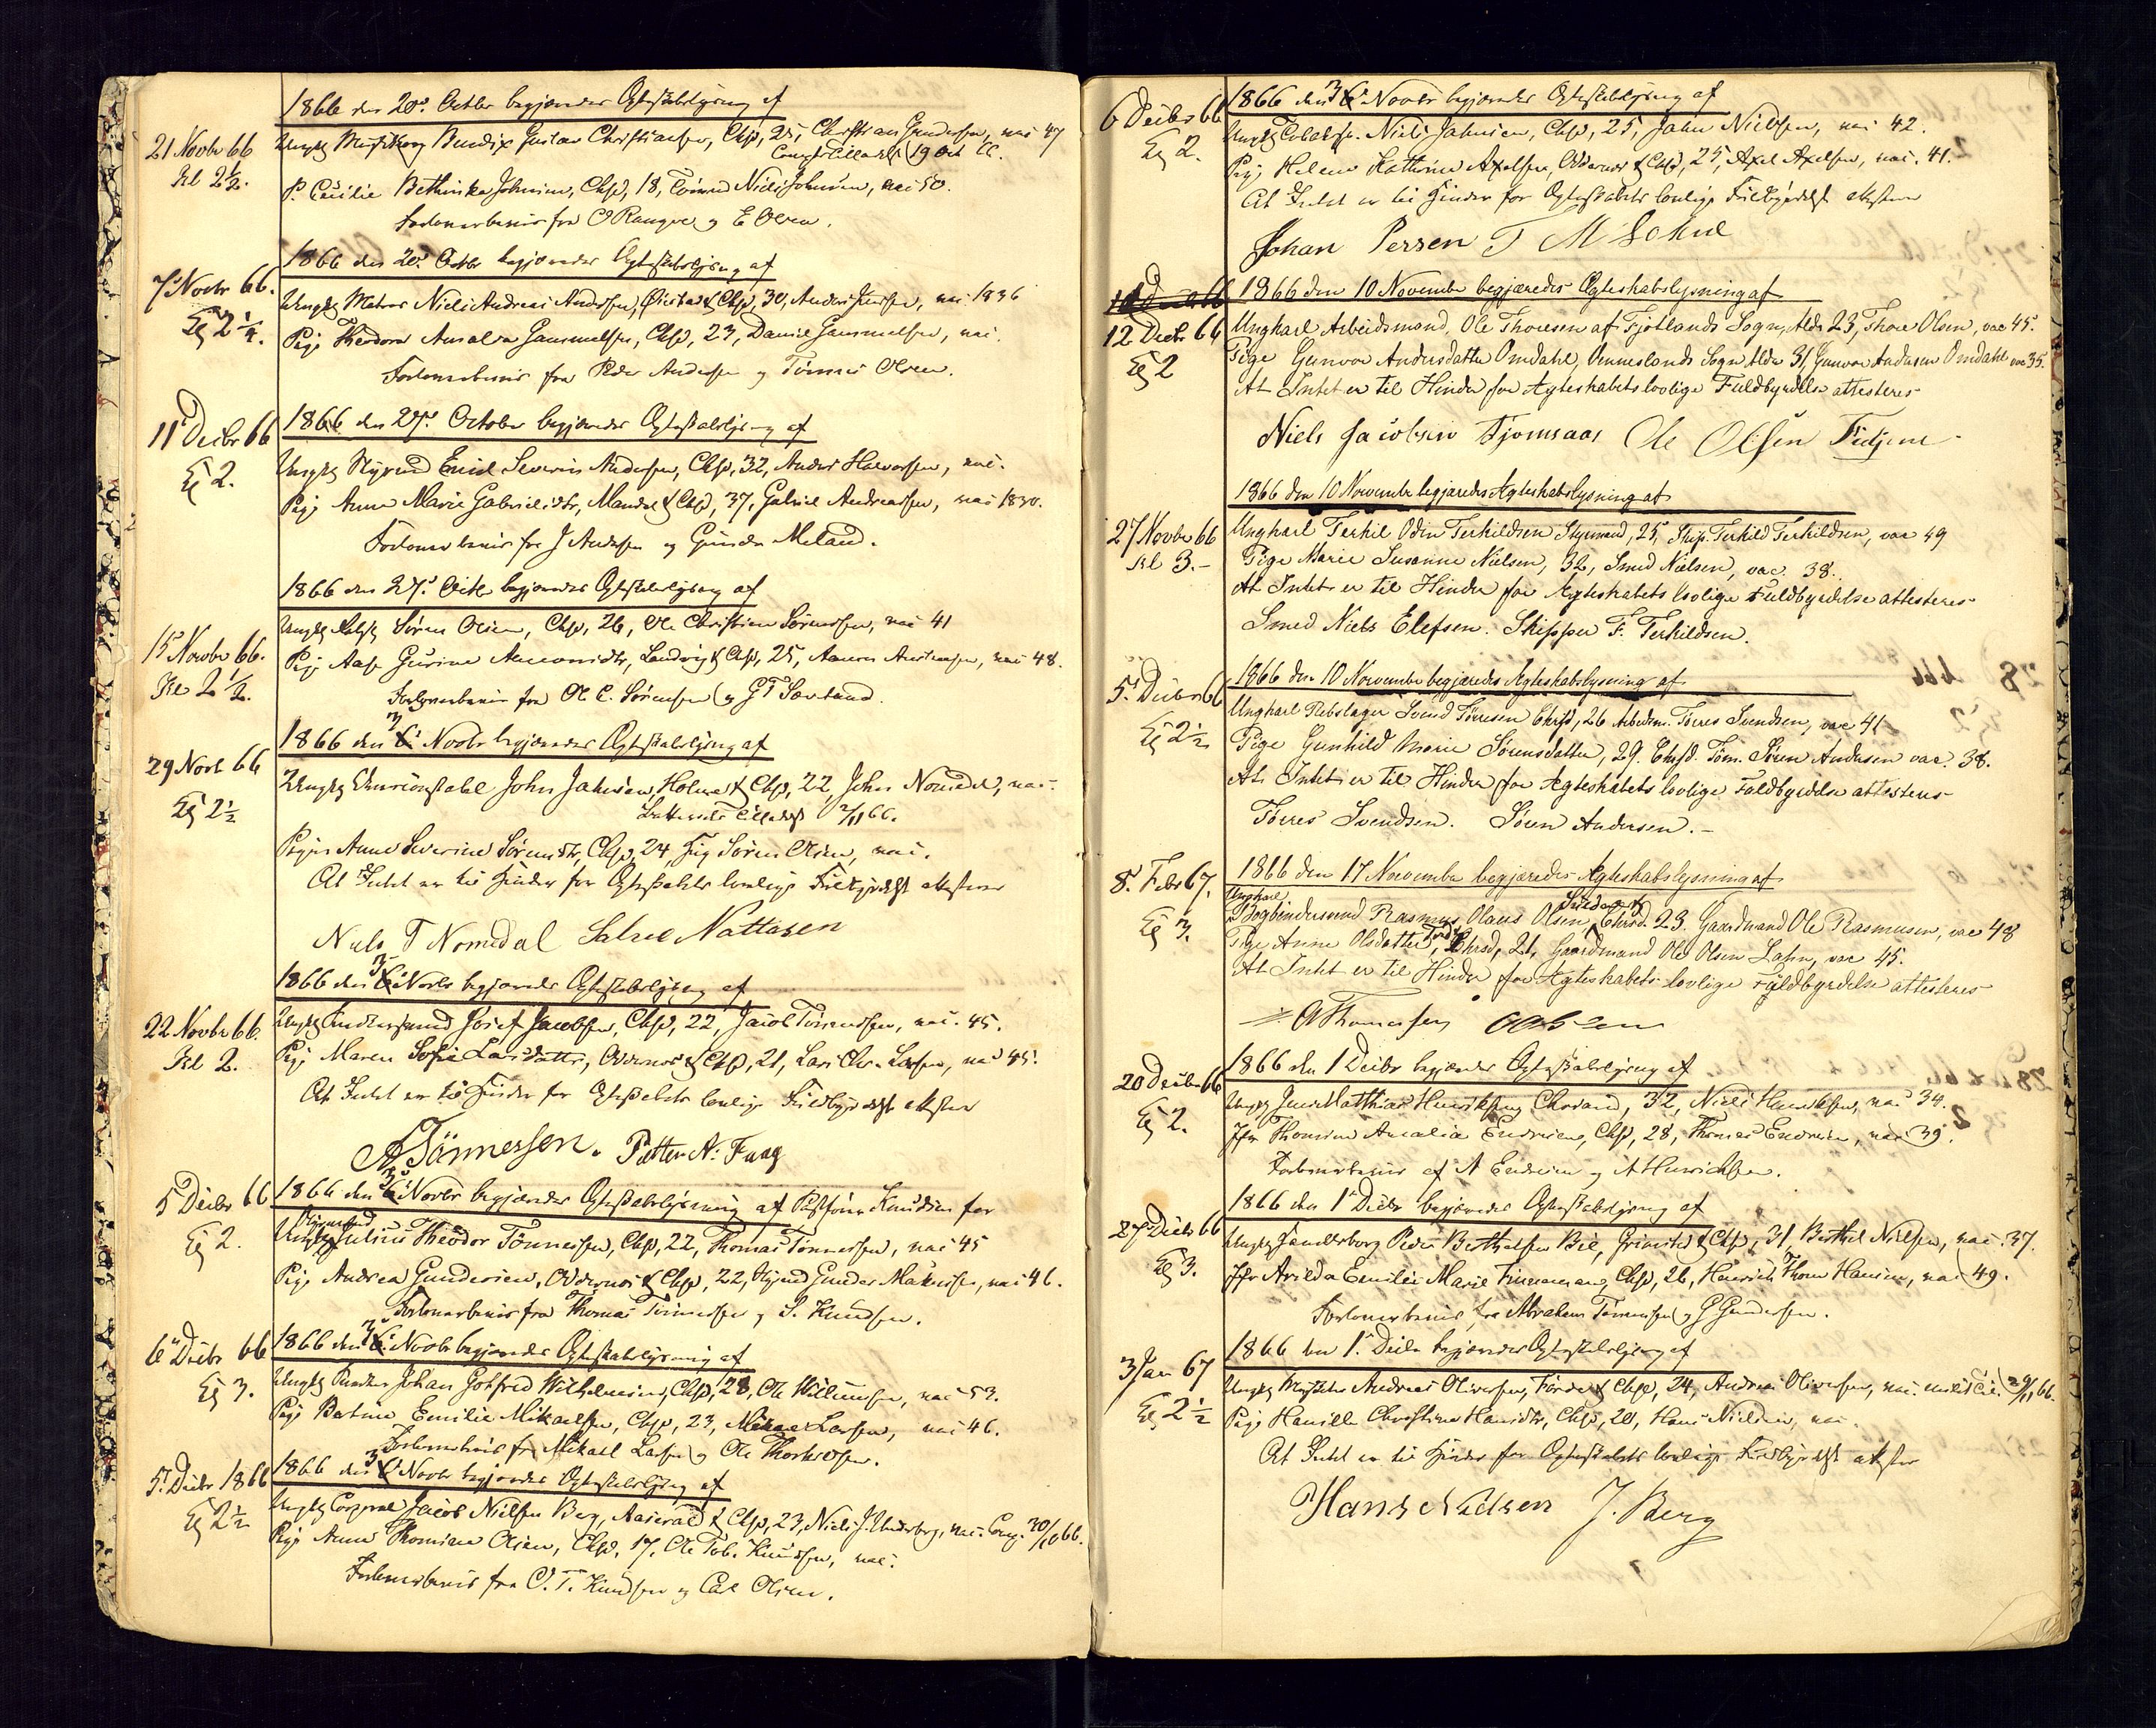 1866 den 20de Octbr begjæredes Ægteskabslysning af
21 Novbr 66
Kl 2½.
Ungk Bendix Gustav Christiansen, Chsd, 25, Christian Gundersen, vac 47
19 Oct 66.
P. Cecilie Bethinka Johnsen, Chsd, 18, Tømmd Niels Johnsen, vac 50.
Forloverbevis fra O Range og E Olsen.
1866 den 20de Octbr begjæredes Ægteskabslysning af
7 Novbr 66.
Eg 2¼.
Ungk Matros Niels Andreas Andersen, & Chsd, 30, Anders Jensen, vac 1836
Pige Theodora Amalia Gammelsen, Chsd, 23, Daniel Gammelsen, vac.
Forloverbevis fra Peder Andersen og Tønnes Olsen.
11 Decbr 66
Eg 2.
1866 den 27de October begjæredes Ægteskabslysning af
Ungk Styrmd Emil Severin Andersen, Chsd, 32, Anders Halvorsen, vac.
Pige Anne Marie Gabrielsdtr, Mandal & Chsd, 37, Gabriel Andreassen, vac 1830.
Forloverbevis fra J Andersen og Gunder Meland.
1866 den 27de Octbr begjæredes Ægteskabslysning af
15 Novbr 66.
Kl 2½.
Ungk Søren Olsen, Chsd, 26, Ole Christian Sørensen, vac 41
Pige Aase Gurine Aanonsdtr, Landvig & Chsd, 25, Aanon Austensen, vac 48.
Forloverbevis fra Ole C. Sørensen og G T Sørland.
1866 den 3 Novbr begjæredes Ægteskabslysning af
29 Novb 66
Eg 2½
Ungk John Jahnsen, Holme & Chsd, 22, John Nomedal, vac.
2/11 66.
Pigen Anne Severine Sørensdtr, Chsd, 24, Søren Olsen, vac.
At Intet er til Hinder for Ægteskabets lovlige Fuldbyrdelse attesteres
Niels T Nomedal Salve Nattasen
1866 den 3 Novbr begjæredes Ægteskabslysning af
22 Novbr 66.
Kl 2.
Ungk Josef Jacobsen, Chsd, 22, Jacob Tønnessen, vac. 45.
Pige Maren Sofie Larsdatter, Oddernes & Chsd, 21, Lars Chr. Larsen, vac 45.
At Intet er til Hinder for Ægteskabets lovlige Fuldbyrdelse attesteres
A Tönnessen. Petter N: Faag
1866 den 3 Novbr begjæredes Ægteskabslysning af Knudsen for
5 Decbr 66
Eg 2.
Styrmand
Ungk Julius Theodor Tönnessen, Chsd, 22, Thomas Tønnessen, vac 45
Pige Andrea Gundersen, Oddernes & Chsd, 22, Styrmd Gunder Mathisen, vac 46.
Forloverbevis fra Thomas Tønnessen og S. Knudsen.
1866 den 3 Novbr begjæredes Ægteskabslysning af
6 Decbr 66
Eg 3.
Ungk Johan Gotfred Wilhelmsen, Chsd, 28, Ole Willumsen, vac 53.
Pige Bertine Emilie Mikaelsen, Chsd, 23, Mikael Larsen, vac 46.
Forloverbevis fra Mikael Larsen og Ole Thorkildsen.
1866 den 3 Novbr begjæredes Ægteskabslysning af
5 Decbr 1866
Eg 2½
Ungk Corporal Jacob Nielsen Berg, & Chsd, 23, Niels J. Underberg, vac. Comp. 30/10 66.
Pige Anne Thomine Olsen, Chsd, 17, Ole Tob. Knudsen, vac.
Forloverbevis fra O. T. Knudsen og Carl Olsen.
1866 den 3 Novbr begjæredes Ægteskabslysning af
6 Decbr 66
Eg 2.
Ungk Niels Jahnsen, Chsd, 25, Jahn Nielsen, vac 42.
Pige Helene Kathrine Axelsen, Oddernes & Chsd, 25, Axel Axelsen, vac. 41.
At Intet er til Hinder for Ægteskabets lovlige Fuldbyrdelse attesteres
Johan Persen T M Lohne
1866 den 10 November begjæredes Ægteskabslysning af
12 Decbr 66
Eg 2
Ungkarl Arbeidsmand, Ole Thoresen af Fjotlands Sogn, Alder 23, Thore Olsen, vac 45.
Pige Gunvor Andersdatter Omdahl, Ounneslands Sogn, Alder 31, Gunvor Andersen Omdahl vac 35.
At Intet er til Hinder for Ægteskabets lovlige Fuldbyrdelse attesteres
Niels Jacobsen Fjomsaas Ole Olsen Fidjene
1866 den 10 November begjæredes Ægteskabslysning af
27 Novbr 66
Kl 3.-
Ungkarl Terkil Odin Terkildsen Styrmand, 25, Skip. Terkild Terkildsen, vac 49
Pige Marie Susanne Nielsen, 32, Smed Nielsen, vac. 38.
At Intet er til Hinder for Ægteskabets lovlige Fuldbyrdelse attesteres
Smed Niels Elefsen. Skipper T. Terkildsen.
1866 den 10 November begjæredes Ægteskabslysning af
5 Decbr 66
Eg 2½
Ungkarl Rebslager Svend Tørresen Chrsd, 26 Arbedsm. Tørres Svendsen, vac 41
Pige Gunhild Marie Sørensdatter, 29. Chrsd. Tøm. Søren Andersen vac. 38.
At Intet er til Hinder for Ægteskabets lovlige Fuldbyrdelse attesteres
Tørres Svendsen. Søren Andersen.-
1866 den 17 November begjæredes Ægteskabslysning af
8. Febr 67.
Eg 3.
Ungkarl
Bogbindersvend Rasmus Olaus Olsen, Chrsd. 23. Gaardmand Ole Rasmusen, vac 48
Pige Anne Olsdatter, Chrsd, 21, Gaardmand Ole Olsen Lahn, vac 45.
At Intet er til Hinder for Ægteskabets lovlige Fuldbyrdelse attesteres
A Thomassen O Olsen
1866 den 1 Decbr begjæredes Ægteskabslysning af
20 Decbr 66
Eg 2.
Ungk Jens Matthias Henriksen, Chrsand, 32, Niels Henriksen, vac 34.
Jfr Thomine Amalia Endresen, Chsd, 28, Thomas Endresen, vac 39.
Forloverbevis af A Endresen og A Henrichsen.
1866 den 1 Decbr begjæredes Ægteskabslysning af
27 Decbr 66
Eg 3.
Ungk Handelsborg Peder Berthelsen Bie, Grimstad & Chsd, 31, Berthel Nielsen, vac. 37.
Jfr Arilda Emilie Marie Zimmermann, Chsd, 26, Henrich Thom Hansen, vac 49.
Forloverbevis fra Abraham Tønnessen og G Gundersen.
1866 den 1. Decbr begjæredes Ægteskabslysning af
3 Jan 67
Eg 2½
Ungk Andreas Oliversen, & Chsd, 24, Andreas Oliversen, vac. 29/11 66.
Pige Hanille Christine Hansdtr, Chsd, 20, Hans Nielsen, vac.
At Intet er til Hinder for Ægteskabets lovlige Fuldbyrdelse attesteres
Hans Nielsen J. Berg